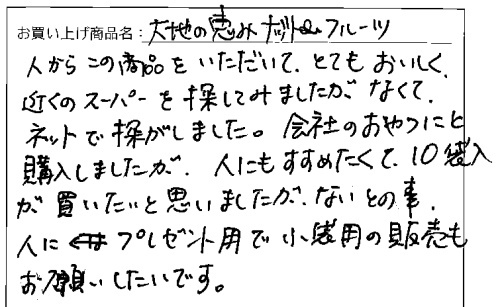 お買い上げ商品名：大地の恵みナット&フルーツ
人からこの商品をいただいて、とてもおいしく、
近くのスーパーを探してみましたが、なくて、
ネットで探がしました。会社のおやつにと
購入しましたが、人にもすすめたくて、10袋入
が買いたいと思いましたが、ないとの事、
人にプレゼント用で小袋用の販売も
お願いしたいです。